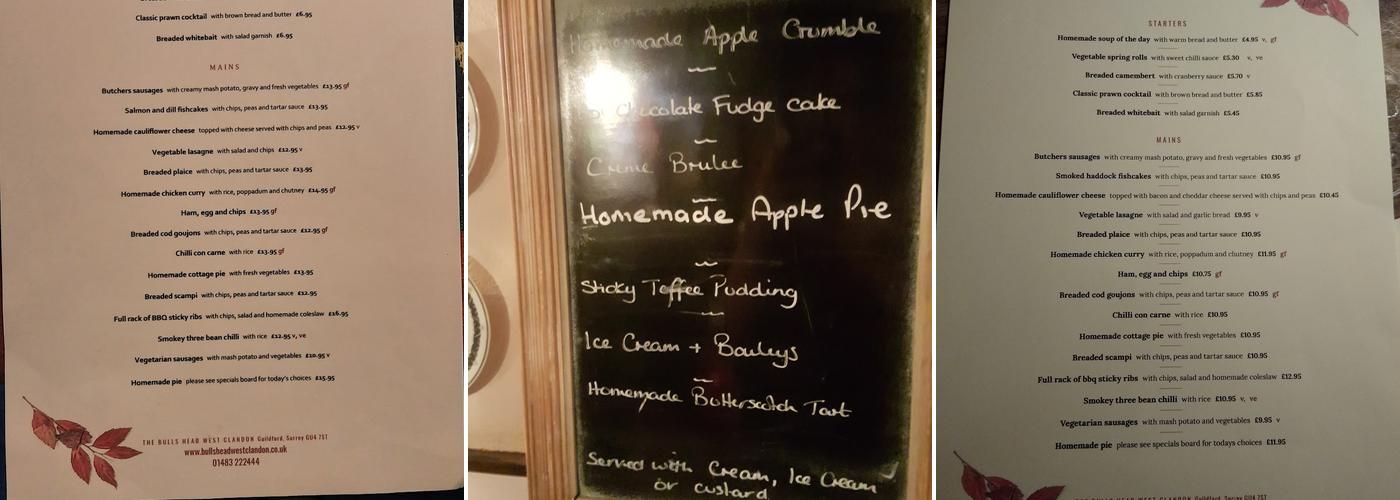 Classic prawn cocktail with brown bread and butter £6.95
Breaded whitebait with salad garnish £6.95
MAINS
Butchers sausages with creamy mash potato, gravy and fresh vegetables £13.95 gf
Salmon and dill fishcakes with chips, peas and tartar sauce £13.95
Homemade cauliflower cheese topped with cheese served with chips and peas £12.95 v
Vegetable lasagne with salad and chips £12.95 v
Breaded plaice with chips, peas and tartar sauce £13.95
Homemade chicken curry with rice, poppadum and chutney £14.95 gf
Ham, egg and chips £13.95 gf
Breaded cod goujons with chips, peas and tartar sauce £12.95 gf
Chilli con carne with rice £13.95 gf
Homemade cottage pie with fresh vegetables £13.95
Breaded scampi with chips, peas and tartar sauce £12.95
Full rack of BBQ sticky ribs with chips, salad and homemade coleslaw £16.95
Smokey three bean chilli with rice £12.95 v, ve
Vegetarian sausages with mash potato and vegetables £10.95 v
Homemade pie please see specials board for today's choices £15.95
THE BULLS HEAD WEST CLANDON Guildford, Surrey GU4 7ST
www.bullsheadwestclandon.co.uk
01483 222444
Homemade Apple Crumble
Chocolate Fudge cake
Creme Brulee
Homemade Apple Pie
Sticky Toffee Pudding
Ice Cream + Baileys
Homemade Butterscotch Tart
Served with Cream, Ice Cream
or custard
STARTERS
Homemade soup of the day with warm bread and butter £4.95 v, gf
Vegetable spring rolls with sweet chilli sauce £5.30 v, ve
Breaded camembert with cranberry sauce £5.70 v
Classic prawn cocktail with brown bread and butter £5.85
Breaded whitebait with salad garnish £5.45
MAINS
Butchers sausages with creamy mash potato, gravy and fresh vegetables £10.95 gf
Smoked haddock fishcakes with chips, peas and tartar sauce £10.95
Homemade cauliflower cheese topped with bacon and cheddar cheese served with chips and peas £10.45
Vegetable lasagne with salad and garlic bread £9.95 v
Breaded plaice with chips, peas and tartar sauce £10.95
Homemade chicken curry with rice, poppadum and chutney £11.95 gf
Ham, egg and chips £10.75 gf
Breaded cod goujons with chips, peas and tartar sauce £10.95 gf
Chilli con carne with rice £10.95
Homemade cottage pie with fresh vegetables £10.95
Breaded scampi with chips, peas and tartar sauce £10.95
Full rack of bbq sticky ribs with chips, salad and homemade coleslaw £12.95
Smokey three bean chilli with rice £10.95 v, ve
Vegetarian sausages with mash potato and vegetables £9.95 v
Homemade pie please see specials board for todays choices £11.95
THE BULLS HEAD WEST CLANDON Guildford, Surrey GU4 7ST